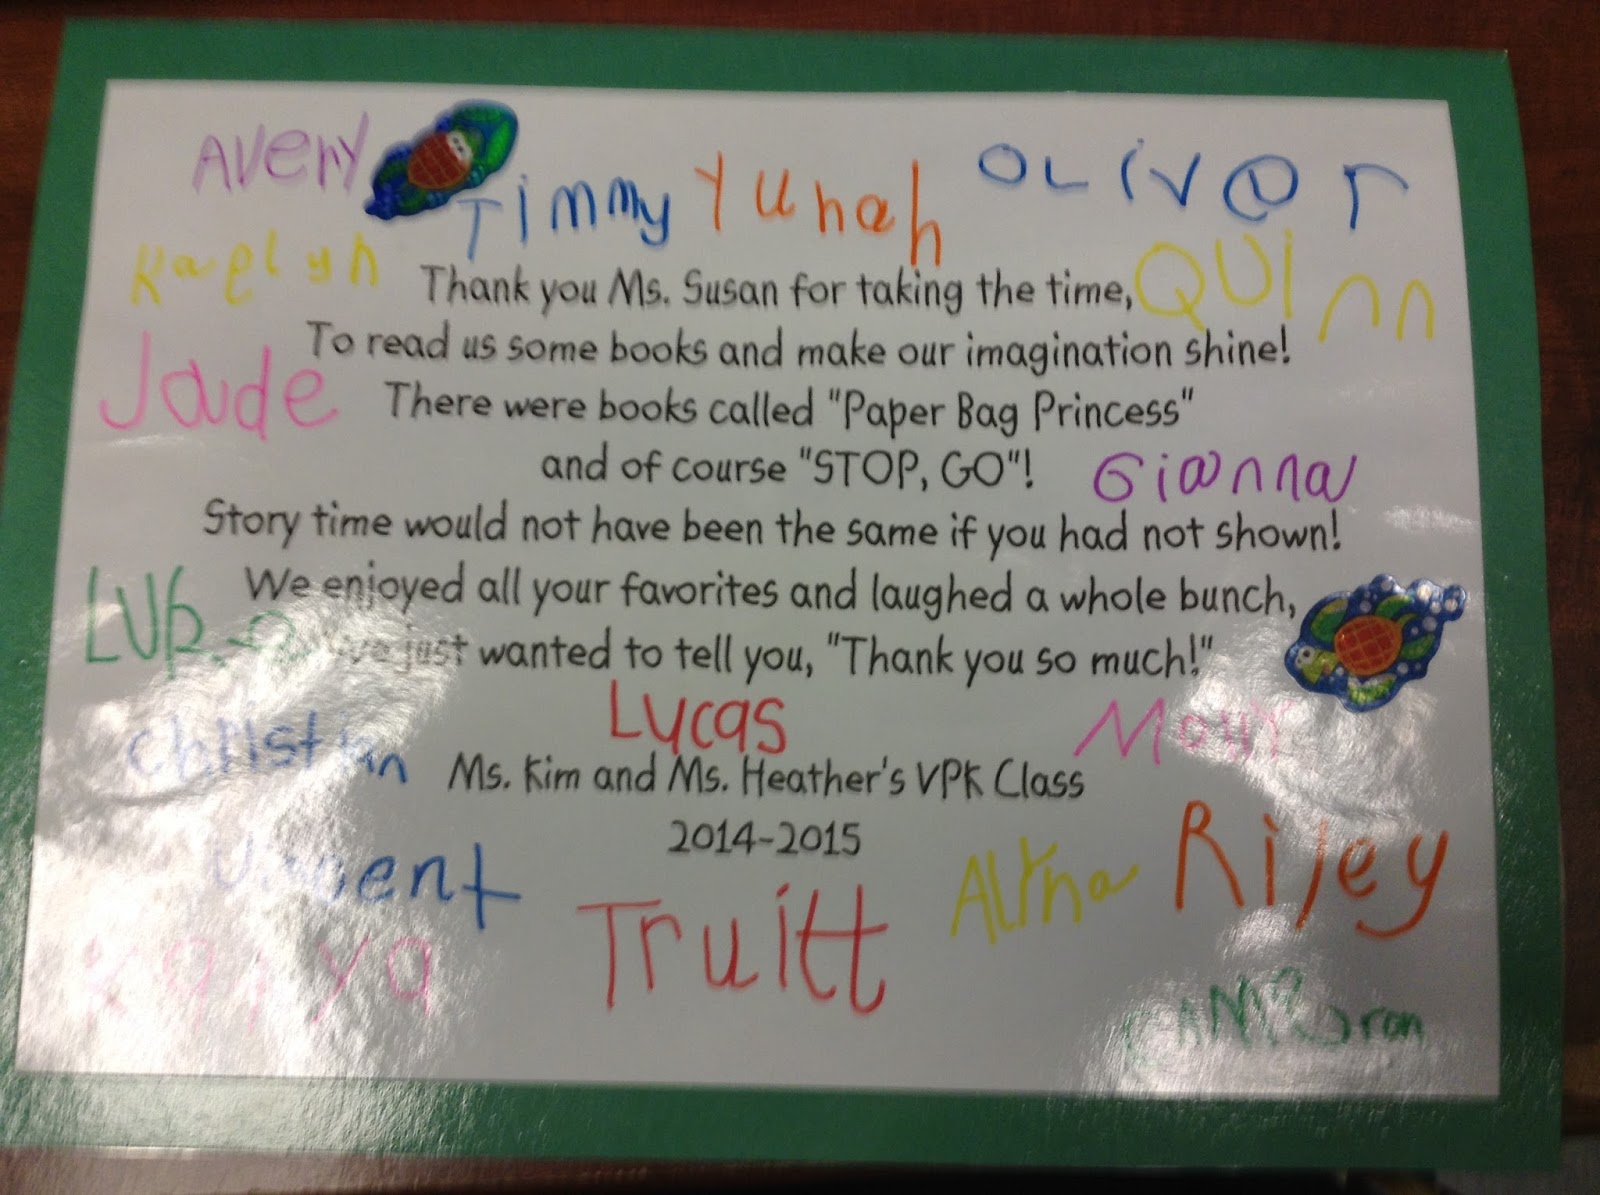 Avery
Timmy Yunah Oliver
Kaelyn
Thank you Ms. Susan for taking the time, Quinn
To read us some books and make our imagination shine!
Jade
There were books called "Paper Bag Princess"
and of course "STOP, GO"! Gianna
Story time would not have been the same if you had not shown!
We enjoyed all your favorites and laughed a whole bunch,
We just wanted to tell you, "Thank you so much!"
Lucas
Christian
Ms. Kim and Ms. Heather's VPK Class
2014-2015
Vincent
Riley
Truitt